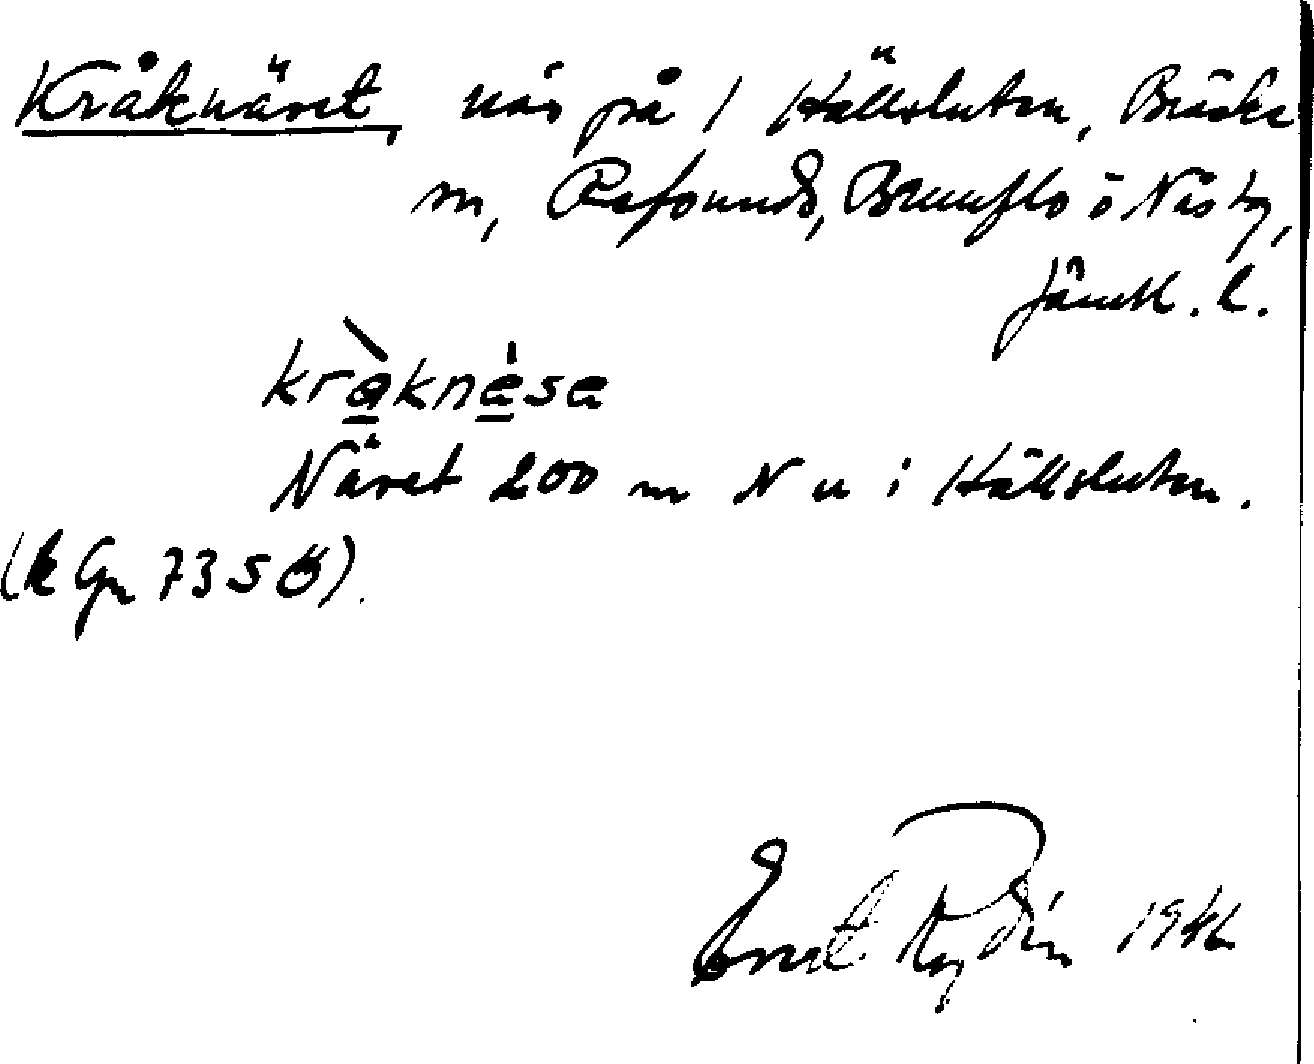 Kråknäset, näs på / Hällsluten, Bräcke
m, Refsunds, Brunflo o Näs tg,
Jämtl. l.
kràknèsa
Näset 200 m N u i Hällsluten.
(k Gn 735 Ö).
Ernst Rydin 1946